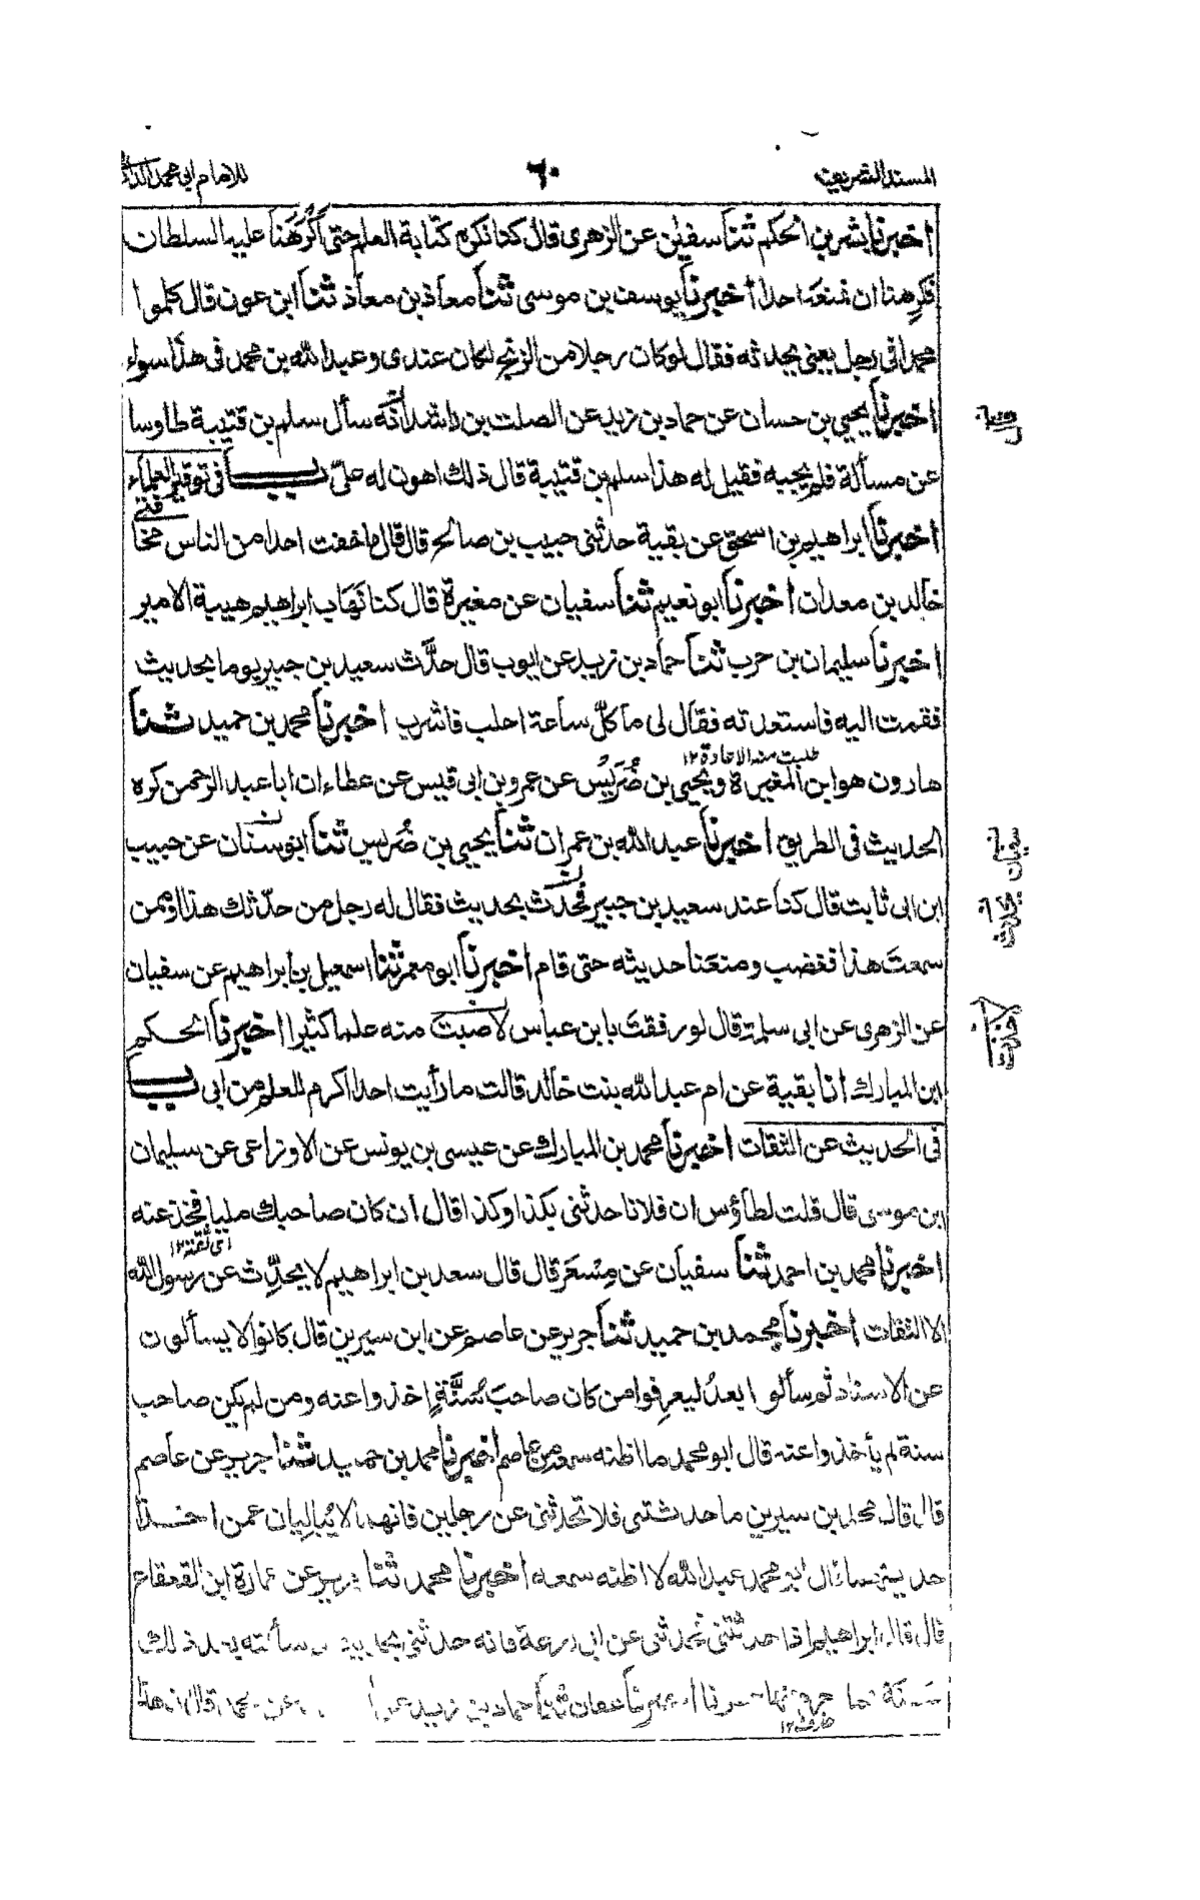 المسند الشريف ٦٠ للامام ابي محمد الدار
اخبرنا بشر بن الحكم ثنا سفيٰن عن الزهرى قال كنا نكره كتابة العلم حتى اَكْرَهَنا عليه السلطان
فكرِهنا ان نمنعَه احدا اخبرنا يوسف بن موسى ثنا معاذ بن معاذ ثنا ابن عون قال كلموا
محمدا فى رجل يعنى يحدثه فقال لو كان رجلا من الزنج لكان عندى وعبد الله بن محمد فى هذا سواء
اخبرنا يحيى بن حسان عن حماد بن زيد عن الصلت بن راشد انه سأل سلم بن قتيبة طاوسا
عن مسألة فلم يجبه فقيل له هذا سلم بن قتيبة قال ذلك اهون له علىّ باب فى توقير العلماء
اخبرنا ابراهيم بن اسحق عن بقية حدثنى حبيب بن صالح قال قال ما خفت احدا من الناس مخافتى
خالد بن معدان اخبرنا ابو نعيم ثنا سفيان عن مغيرة قال كنا نَهَاب ابراهيم هيبة الامير
اخبرنا سليمان بن حرب ثنا حماد بن زيد عن ايوب قال حدَّث سعيد بن جبير يوما بحديث
فقمت اليه فاستعدته فقال لى ما كلَّ ساعة احلب فاشرب اخبرنا محمد بن حميد ثنا
طلبت منه الاعادة ١٢
هارون هو ابن المغيرة ويحيى بن ضُرَيْس عن عمرو بن ابى قيس عن عطاء ان ابا عبد الرحمن كره
الحديث فى الطريق اخبرنا عبد الله بن عمران ثنا يحيى بن ضُريس ثنا ابو سنان عن حبيب
سفيان
ابن ابى ثابت قال كنا عند سعيد بن جبير فحدّث بحديث فقال له رجل من حدّثك هذا او ممن
يحدث
سمعتَ هذا فغضب ومنعَنا حديثه حتى قام اخبرنا ابو معمر ثنا اسمعيل بن ابراهيم عن سفيان
عن الزهرى عن ابى سلمة قال لو رفقتَ بابن عباس لاصبت منه علما كثيرا اخبرنا الحكم
لاخذت
ابن المبارك انا بقية عن ام عبد الله بنت خالد قالت ما رأيت احدا اكرم للعلم من ابى باب
فى الحديث عن الثقات اخبرنا محمد بن المبارك عن عيسى بن يونس عن الاوزاعى عن سليمان
ابن موسى قال قلت لطاؤس ان فلانا حدثنى بكذا وكذا قال ان كان صاحبك مليا فخذ عنه
اى ثقة ١٢
اخبرنا محمد بن احمد ثنا سفيان عن مِسْعَر قال قال سعد بن ابراهيم لا يحدِّث عن رسول الله
الا الثقات اخبرنا محمد بن حميد ثنا جرير عن عاصم عن ابن سيرين قال كانوا لا يسألون
عن الاسناد ثم سألوا بعدُ ليعرفوا من كان صاحبَ سُنَّةٍ اخذوا عنه ومن لم يكن صاحب
سنة لم يأخذوا عنه قال ابو محمد ما اظنه سمعه من عاصم اخبرنا محمد بن حميد ثنا جرير عن عاصم
قال قال محمد بن سيرين ما حدثتنى فلا تحدثنى عن رجلين فانهما لا يُباليان عمن اخذا
حديثهما قال ابو محمد عبد الله لا اظنه سمعه اخبرنا محمد ثنا جرير عن عمارة ابن القعقاع
قال قال ابراهيم اذا حدثتنى فحدثنى عن ابى زرعة فانه حدثنى بحديث سألته بعد ذلك
سنة فما اخبرنا عفان ثنا حماد بن زيد عن عن محمد قال ان هذا